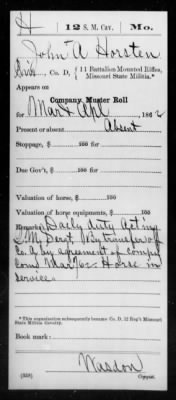 H 12 S. M. Cav. Mo.
John A Horsten
Co. D, { 11 Battalion Mounted Rifles,
Missouri State Militia.*
Appears on
Company Muster Roll
for Mar & Apl, 1862
Present or absent Absent
Stoppage, $ 100 for
Due Gov't, $ 100 for
Valuation of horse, $ 100
Valuation of horse equipments, $ 100
Remarks: Daily duty Acting
By transfer of
Co. A by agreement of Company
Mar 1/62. Horse in
service
*This organization subsequently became Co. D, 12 Reg't Missouri
State Militia Cavalry.
Book mark:
Wasdon
(358) Copyist.